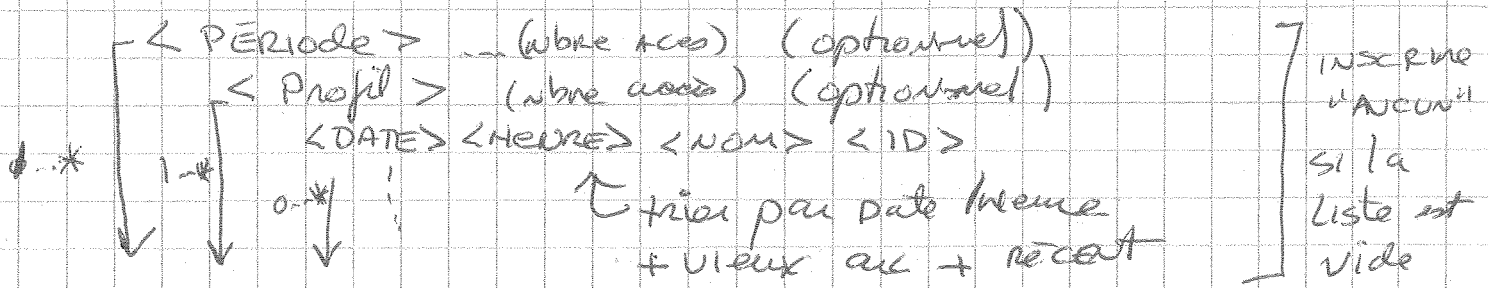 < PÉRiode > ... (nbre accès) (optionnel)
< Profil > (nbre accès) (optionnel)
<DATE> <HEURE> <NOM> <ID>
1..* 1..* 0..*
trier par Date/Heure
+ vieux au + récent
inscrire
"AUCUN"
si la
Liste est
vide